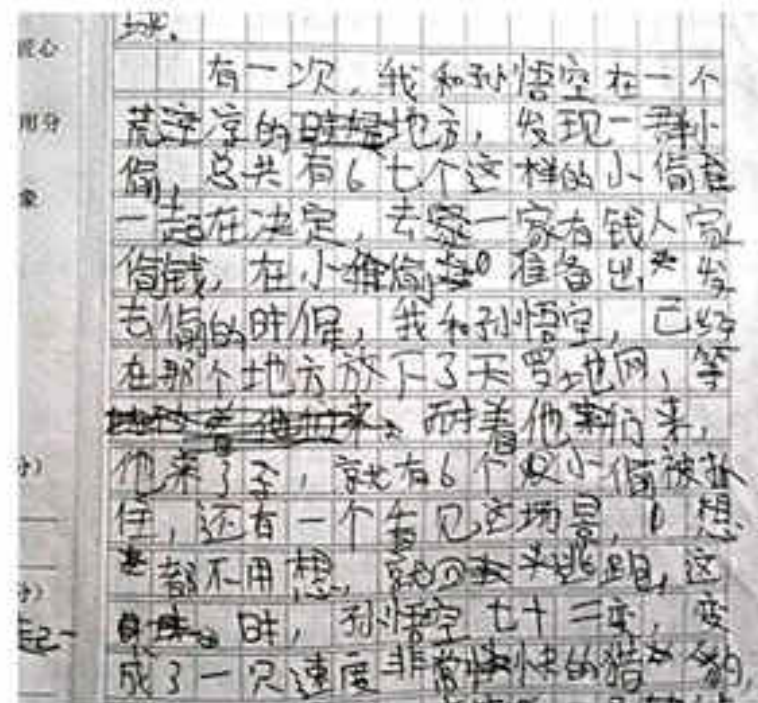 球.
匠心
有一次,我和孙悟空在一个
用分
荒凉的地方,发现一群小
偷,总共有6七个这样的小偷
象
一起在决定,去一家有钱人家
偷钱,在小偷准备出发
去偷的时候,我和孙悟空,已经
在那个地方放下了天罗地网,等
耐着他们来,
分)
他来了了,就有6个小偷被抓
住,还有一个看见这场景,想
都不用想,就逃跑,这
分)
时,孙悟空七十二变,变
起一
成了一只速度非常快的猎